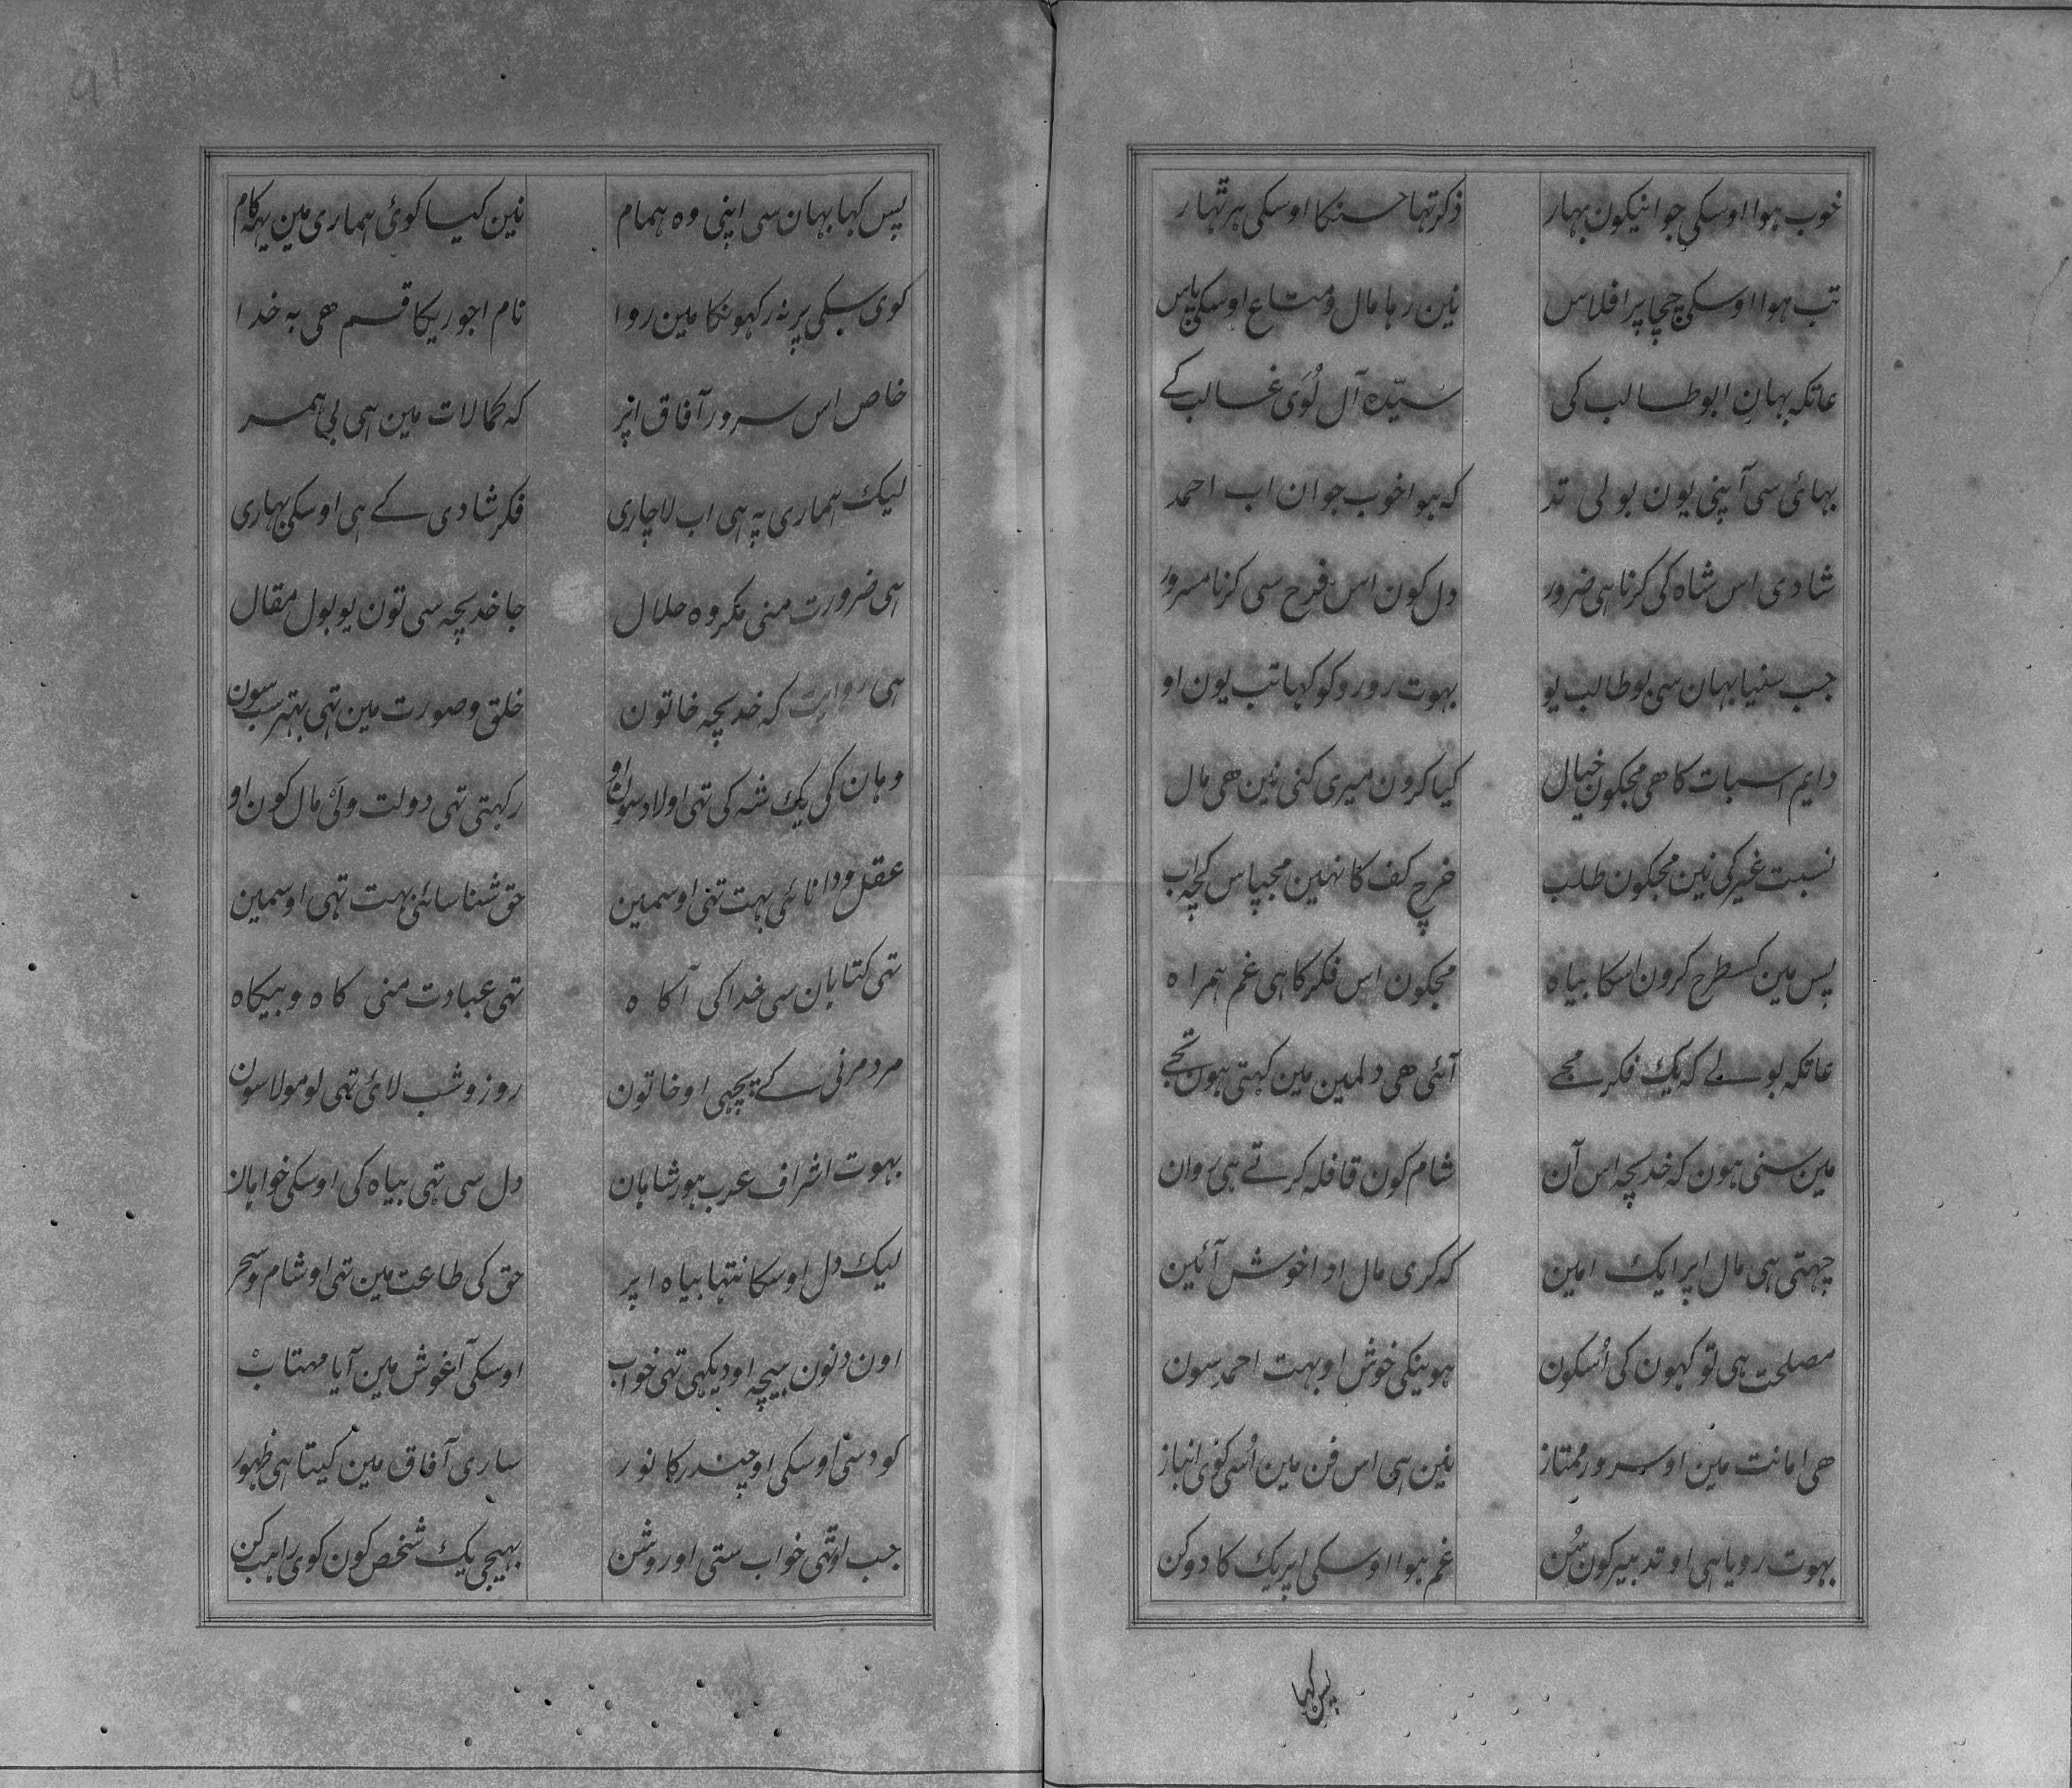 خوب ہوا اوسکی جوانیکون بہار ذکر تہا حسنکا اوسکی ہر تہار
تب ہوا اوسکی چچا پر افلاس نین رہا مال و متاع اوسکی پاس
عاتکہ بہان ابو طالب کی سیّدہ آل لُوَی غالب کے
بہائی سی آپنی یون بولی تد کہ ہوا خوب جوان اب احمد
شادی اس شاہ کی کرنا ہی ضرور دل کون اس فرح سی کرنا مسرور
جب سنیا بہان سی بوطالب یو بہوت رو رو کو کہا تب یون او
دایم اسبات کا ھی مجکون خیال کیا کرون میری کنی نین ھی مال
نسبت غیر کی نین مجکون طلب خرچ کف کا نہین مجپاس کچہ اب
پس مین کسطرح کرون اسکا بیاہ مجکون اس فکر کا ہی غم ہمراہ
عاتکہ بولے کہ یک فکر مجے آئی ھی دلمین مین کہتی ہون تجے
مین سنی ہون کہ خدیجہ اس آن شام کون قافلہ کرتے ہی روان
چہتی ہی مال اپر ایک امین کہ کری مال ادا خوش آئین
مصلحت ہی تو کہون کی اُسکون ہوینکی خوش او بہت احمد سون
ھی امانت مین او سرور ممتاز نین ہی اس فن مین اُسی کوی انباز
بہوت رویا ہی او تدبیر کون سُن غم ہوا اوسکی اپر یک کا دوکن
پس کہا
پس کہا بہان سی اپنی وہ ہمام نین کیا کوئ ہماری مین یہ کام
کوی سبکی پر نہ رکہونکا مین روا نام اجوریکا قسم ھی بہ خدا
خاص اس سرور آفاق اپر کہ کمالات مین ہی بی ہمسر
لیک ہماری پہ ہی اب لاچاری فکر شادی کے ہی اوسکی بہاری
ہی ضرورت منی مکروہ حلال جا خدیجہ سی تون یو بول مقال
ہی روایت کہ خدیجہ خاتون خلق و صورت مین تہی بہتر سب سون
وہان کی یک شہ کی تہی اولاد سون او رکہتی تہی دولت ولی مال کون او
عقل و دانائی بہت تہی اوسمین حق شناسائی بہت تہی اوسمین
تہی کتابان سی خدا کی آکاہ تہی عبادت منی کاہ و بیکاہ
مرد مرنی کے پیچہی او خاتون روز و شب لائ تہی لو مولا سون
بہوت اشراف عرب ہور شاہان دل سی تہی بیاہ کی اوسکی خواہان
لیک دل اوسکا نتہا بیاہ اپر حق کی طاعت مین تہی او شام و سحر
اون دنون بیچہ او دیکہی تہی خواب اوسکی آغوش مین آیا مہتاب
کود سی اوسکی او چندر کا نور ساری آفاق مین کیتا ہی ظہور
جب اوتہی خواب ستی او روشن بہیجی یک شخص کون کوی راہب کن